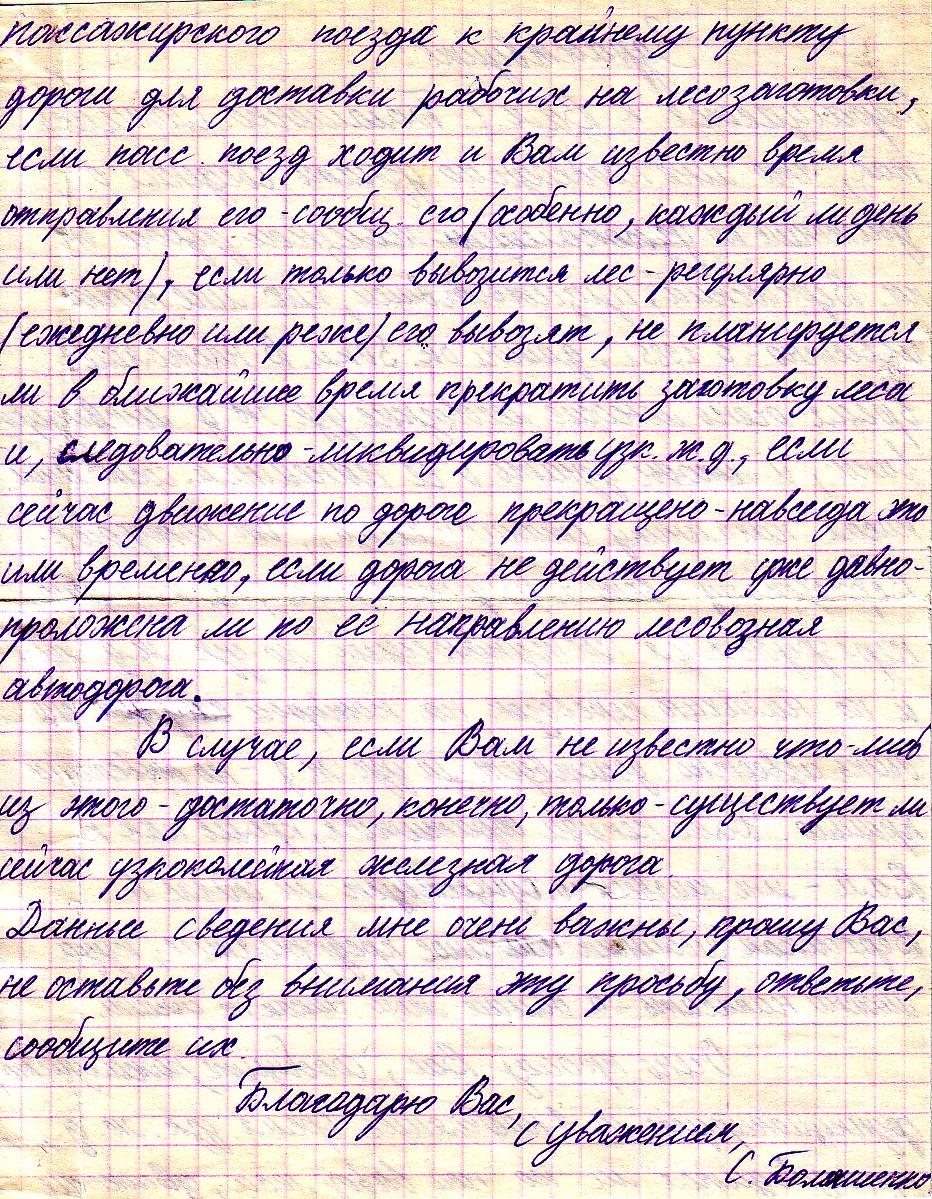 пассажирского поезда к крайнему пункту
дороги для доставки рабочих на лесозаготовки,
если пасс. поезд ходит и Вам известно время
отправления его - сообщ. его (особенно, каждый ли день
или нет), если только вывозится лес - регулярно
(ежедневно или реже) его вывозят, не планируется
ли в ближайшее время прекратить заготовку леса
и, следовательно - ликвидировать узк. ж.д., если
сейчас движение по дороге прекращено - навсегда это
или временно, если дорога не действует уже давно -
проложена ли по её направлению лесовозная
автодорога.
В случае, если Вам не известно что-либ
из этого - достаточно, конечно, только - существует ли
сейчас узкоколейная железная дорога.
Данные сведения мне очень важны, прошу Вас,
не оставьте без внимания эту просьбу, ответьте,
сообщите их.
Благодарю Вас,
С уважением,
С. Болашенко